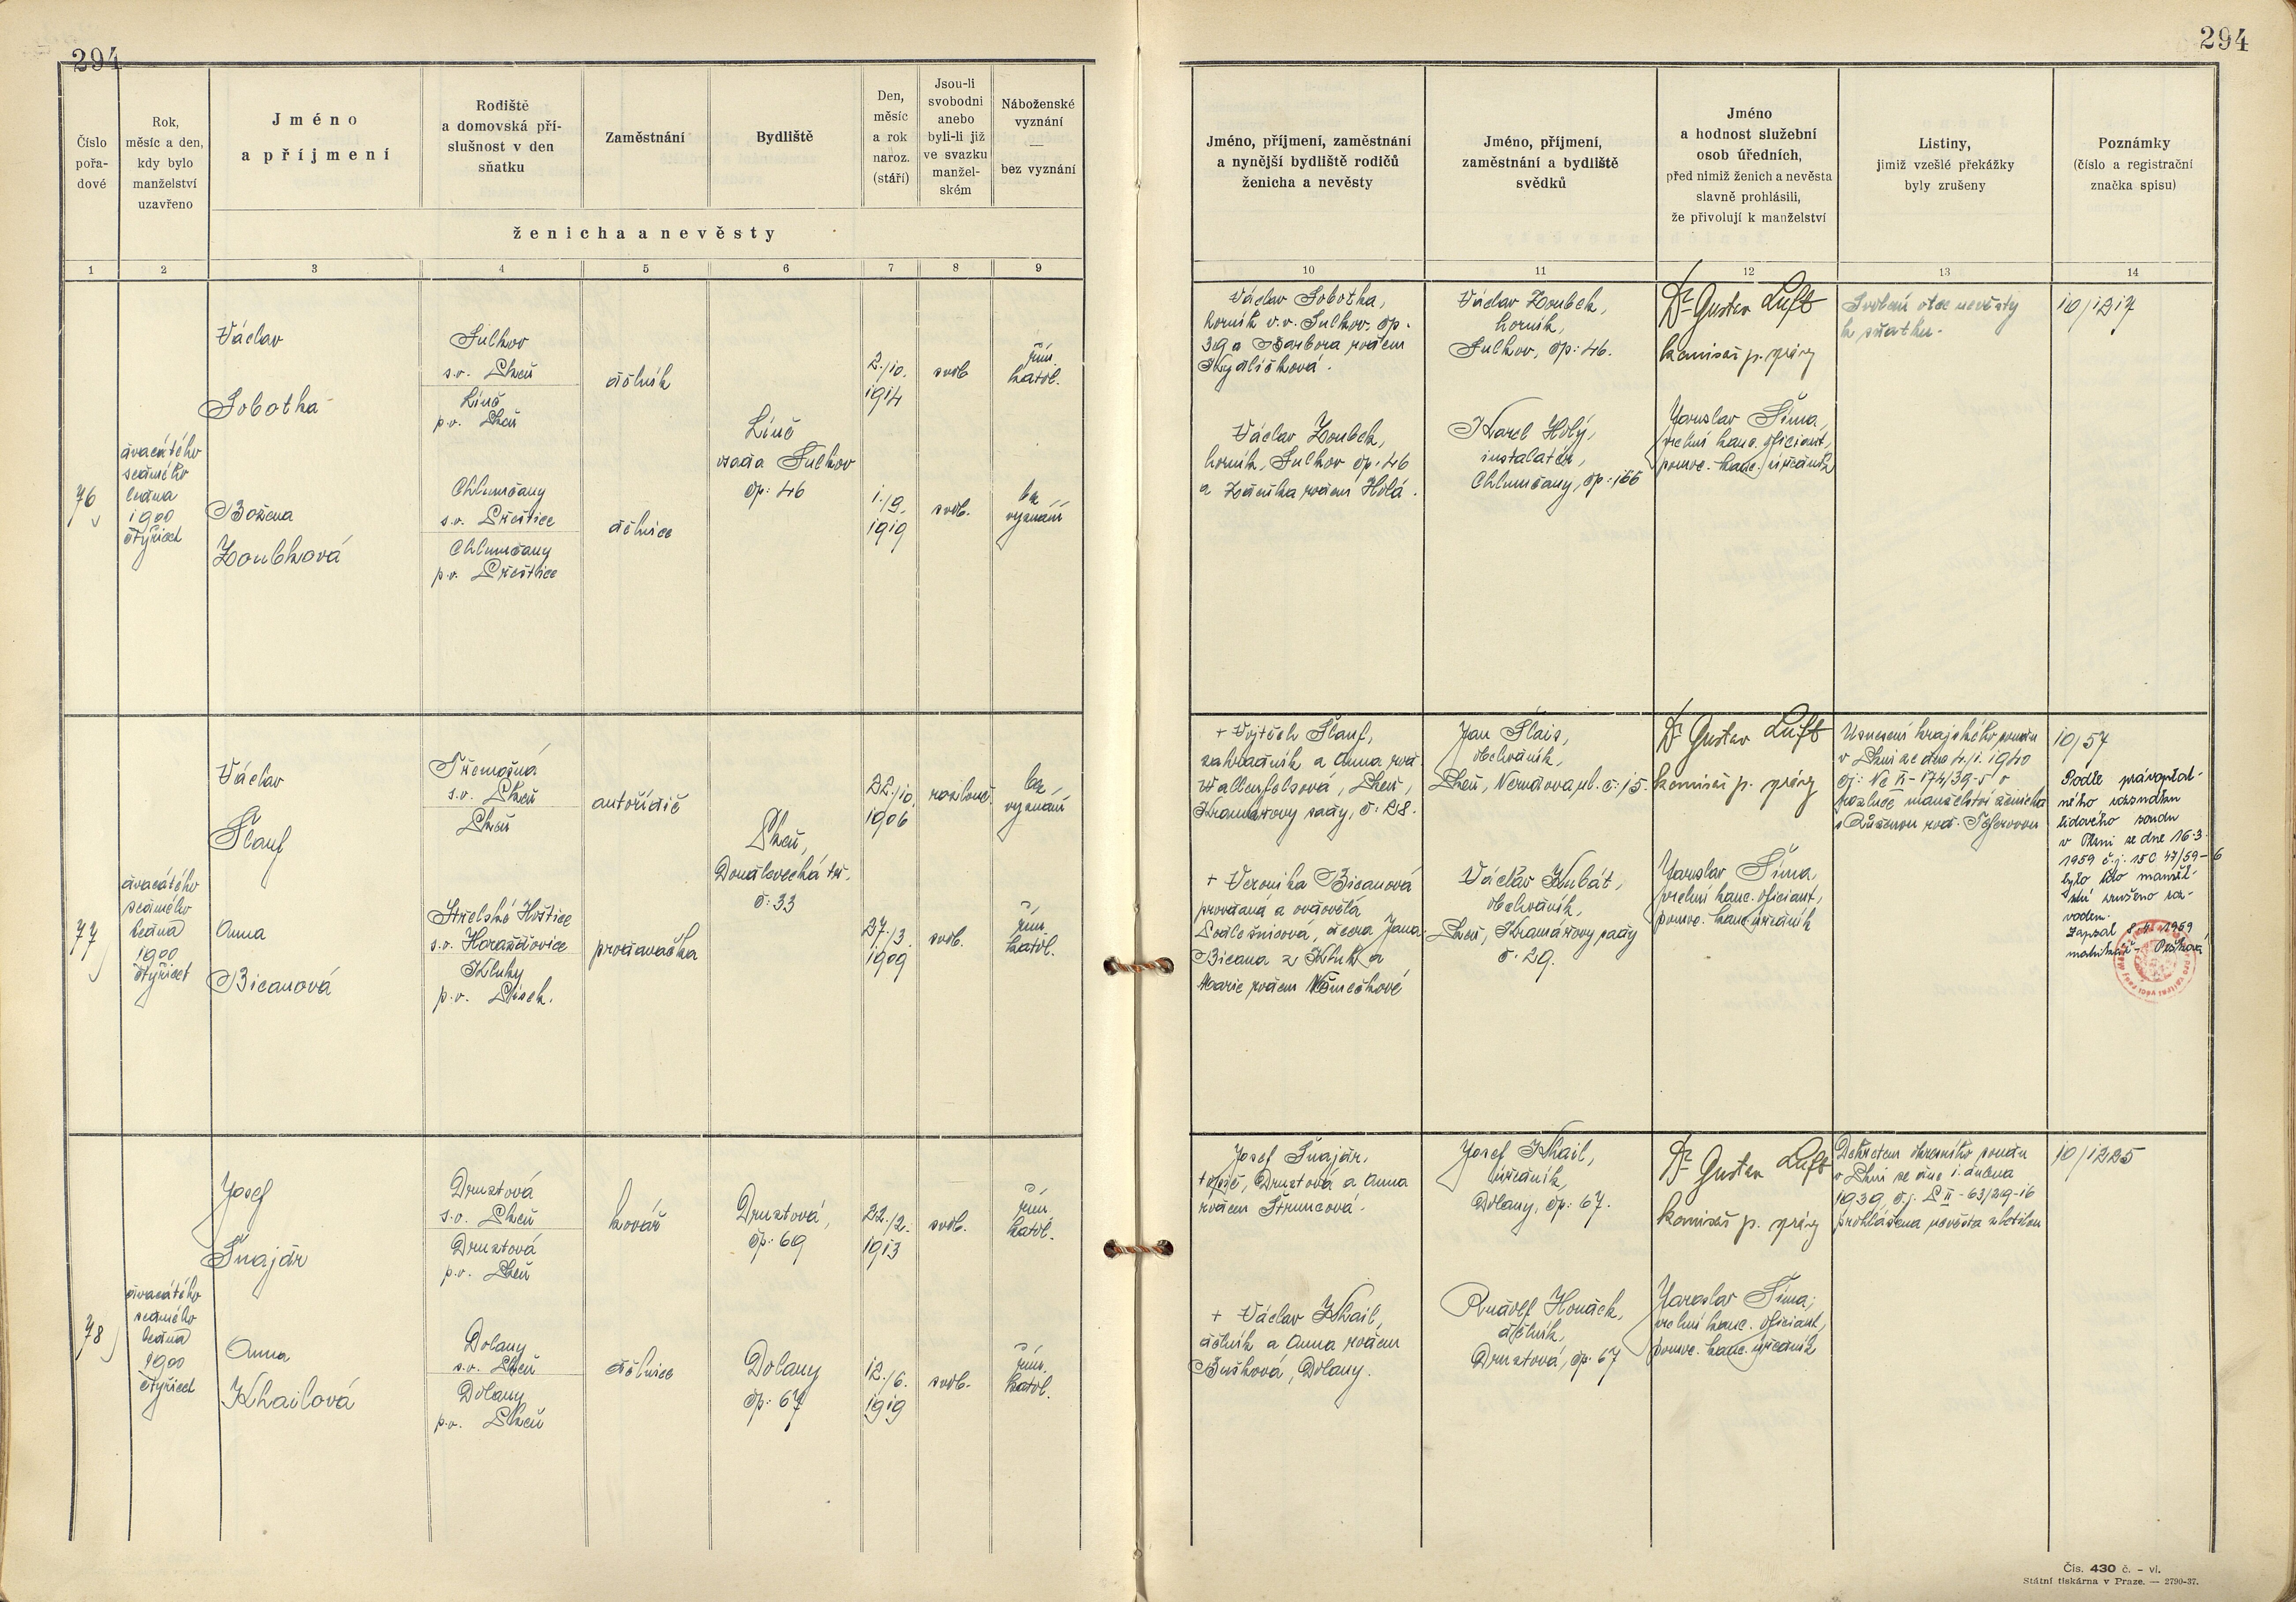 294
294
Číslo
pořa-
dové
Rok,
měsíc a den,
kdy bylo
manželství
uzavřeno
Jméno
a příjmení
Rodiště
a domovská pří-
slušnost v den
sňatku
Zaměstnání
Bydliště
Den,
měsíc
a rok
naroz.
(stáří)
Jsou-li
svobodni
anebo
byli-li již
ve svazku
manžel-
ském
Náboženské
vyznání
—
bez vyznání
ženicha a nevěsty
1 2 3 4 5 6 7 8 9
Jméno, příjmení, zaměstnání
a nynější bydliště rodičů
ženicha a nevěsty
Jméno, příjmení,
zaměstnání a bydliště
svědků
Jméno
a hodnost služební
osob úředních,
před nimiž ženich a nevěsta
slavně prohlásili,
že přivolují k manželství
Listiny,
jimiž vzešlé překážky
byly zrušeny
Poznámky
(číslo a registrační
značka spisu)
10 11 12 13 14
76
dvacátého
sedmého
ledna
1900
čtyřicet
Václav
Sobotka
Sulkov
s.o. Plzeň
Líně
p.o. Plzeň
dělník
2./10.
1914
svob
řím.
katol.
Líně
osada Sulkov
čp: 46
Božena
Zoubková
Chlumčany
s.o. Přeštice
Chlumčany
p.o. Přeštice
dělnice
1./9.
1919
svob.
bez
vyznání
Václav Sobotka,
horník v.v. Sulkov, čp.
39 a Barbora rozem
Václav Zoubek,
horník, Sulkov čp. 46
a Zdeňka rozem Holá.
Václav Zoubek,
horník,
Sulkov, čp: 46.
Karel Holý,
instalatér,
Chlumčany, čp: 166
Dr Gustav Luft
komisař p. správy
Jaroslav Šíma,
kanc. oficiant,
pomoc. kanc. úředník
Svolení otce nevěsty
k sňatku.
10/1217
77
dvacátého
sedmého
ledna
1900
čtyřicet
Václav
Šlauf
Třemošná
s.o. Plzeň
Plzeň
autořidič
22./10.
1906
rozlouč.
bez
vyznání
Plzeň,
Doudlevecká tř.
č: 33
Anna
Bicanová
Střelské Hoštice
s.o. Horažďovice
Kluky
p.o. Písek.
prodavačka
27./3.
1909
svob.
řím.
katol.
+ Vojtěch Šlauf,
zahradník a Anna roz
Wallenfelsová, Plzeň,
Kramářovy sady, č: 28.
+ Veronika Bicanová
provdaná a ovdovělá
dcera Jana
Bicana z Kluk a
Marie rozem Němečkové
Jan Šlais,
obchodník,
Plzeň, Nerudova ul. č: 15.
Václav Kubát,
obchodník,
Plzeň, Kramářovy sady
č. 29.
Dr Gustav Luft
komisař p. správy
Jaroslav Šíma
kanc. oficiant,
pomoc. kanc. úředník
Usnesení krajského soudu
v Plzni ze dne 4./1. 1940
čj: Nc II-174/39-5 o
rozluce manželství ženicha
s Růženou roz.
10/57
Podle právoplat-
ného rozsudku
lidového soudu
v Plzni ze dne 16.3.
1959 č.j. 15C 47/59-6
bylo toto manžel-
ství zrušeno roz-
vodem.
Zapsal 1959
matrikář-
78
dvacátého
sedmého
ledna
1900
čtyřicet
Josef
Šnajdr
Druztová
s.o. Plzeň
Druztová
p.o. Plzeň
kovář
Druztová,
čp: 69
22./2.
1913
svob.
řím.
katol.
Anna
Khailová
Dolany
s.o. Plzeň
Dolany
p.o. Plzeň
dělnice
Dolany
čp: 67
12./6.
1919
svob.
řím.
katol.
Josef Šnajdr,
topič, Druztová a Anna
rozem Štruncová.
+ Václav Khail,
dělník a Anna rozem
Bušková, Dolany.
Josef Khail,
úředník,
Dolany, čp: 67.
Rudolf Houdek,
dělník,
Druztová, čp. 67
Dr Gustav Luft
komisař p. správy
Jaroslav Šíma,
kanc. oficiant,
pomoc. kanc. úředník
Dekretem okresního soudu
v Plzni ze dne 1. dubna
1939, č.j. P II-63/29-16
prohlášena nevěsta zletilou
10/1225
Čís. 430 č. – vl.
Státní tiskárna v Praze. — 2790-37.